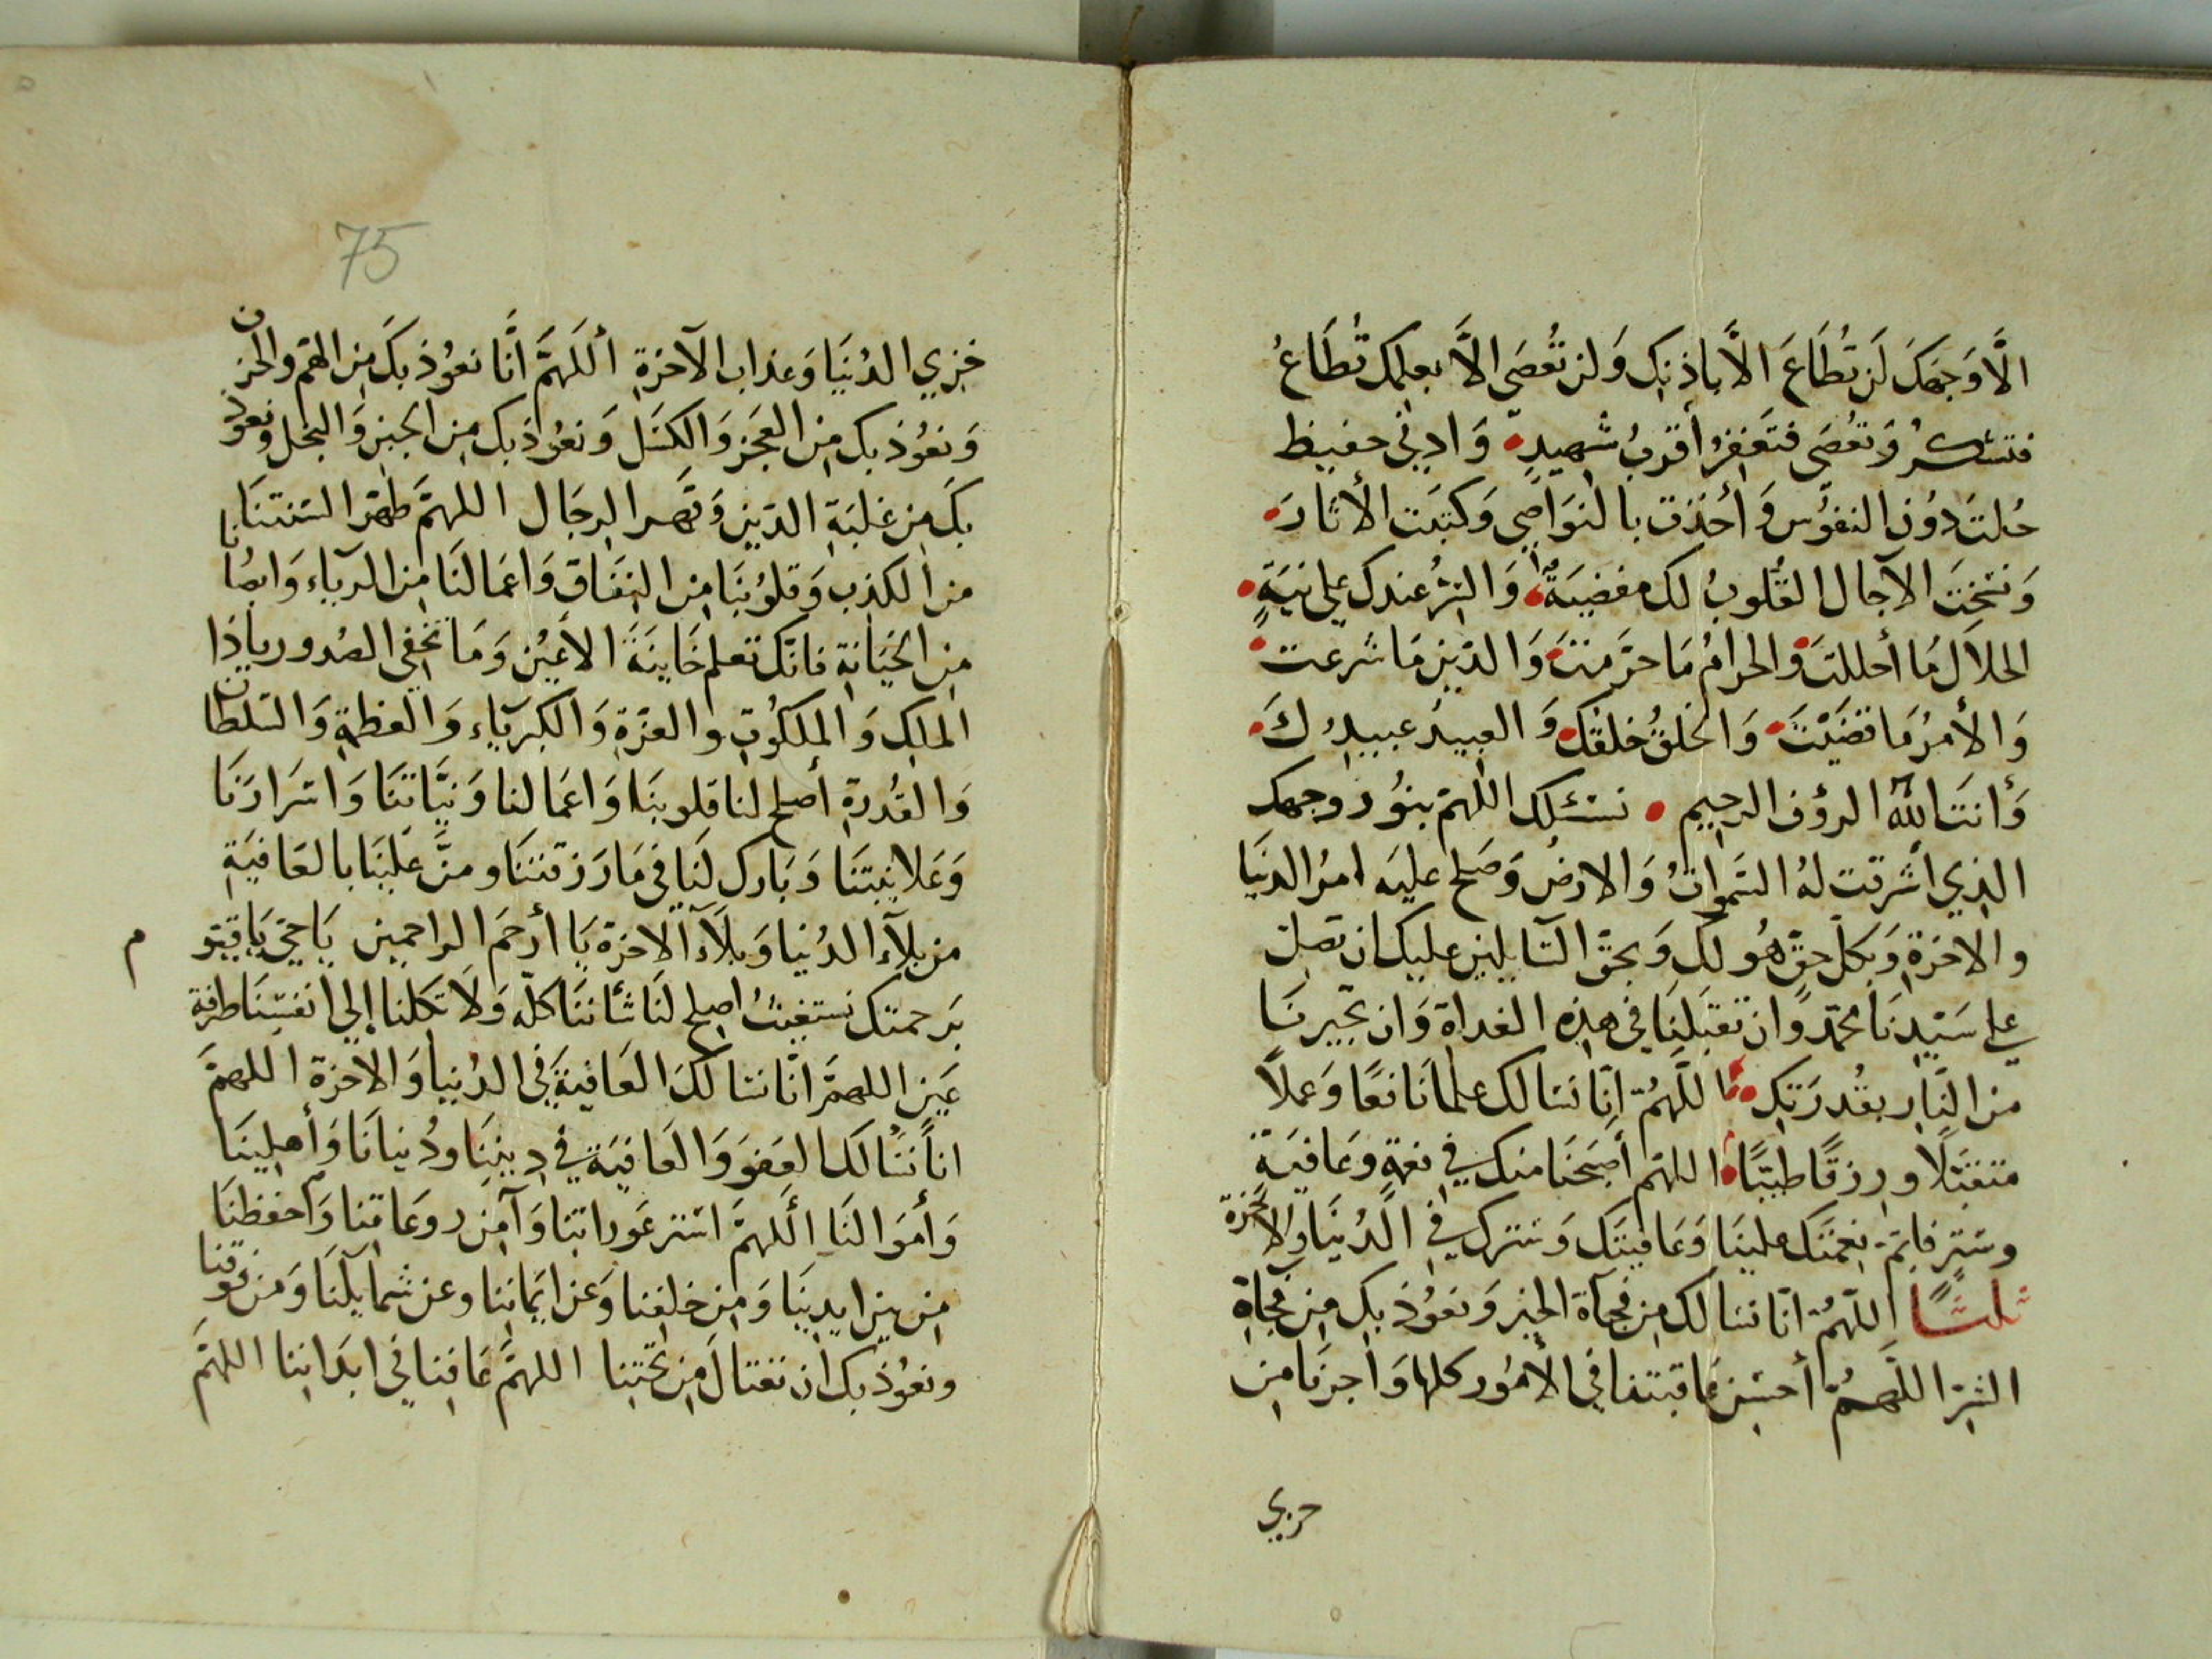 الَّا وَجهَكَ لَن تُطَاعَ الَّا باذِنِك وَلن تُعصَى الَّا بعلمِك تُطَاعُ
فتشكُرُ وَتعُصَى فتَغفِرُ أقرَبُ شهِيدٍ وَادنى حفيظ
حُلتَ دوُن النفوُس وَأخَذت بالنَواصِي وَكتبَت الأثارَ
وَنسَختَ الآجال القُلوبُ لك مفضيَةٌ وَالسّرُ عندك علانيَةٍ
الحلاَل مَا أحللتَ والحرامُ مَا حرَّمتَ وَالدّين مَا شرعت
وَالأمرُ مَا قضَيْتَ وَالخلقُ خلقُك وَالعبيدُ عبيدُكَ
وَأنتَ اللهُ الرؤف الرحيم نسئلك اللهمّ بنوُر وجهك
الذي اشرقت لهُ السَّموَاتُ وَالارضُ وَصَلح عليَه امرُ الدنيَا
والاخرَةِ وَبكلّ حقّ هُو لكِ وَبحقّ السَّايلين عليك ان تصلى
على سَيّدِنَا محمّد وَان تقبَلنَا فِي هذِه الغداة وَان تجيرنَا
من النَّارِ بقُدرَتِك اللَّهُمّ انَّا نسَالك علمًا نَافعًا وَعملاً
متقبَّلاً ورزقًا طيّبًا اللهمّ أصبَحنَا منك فِي نعمَةٍ وعَافيَةٍ
وسَترٍ فاتمّ نعِمتَك علينَا وَعَافيتَك وَسَترك فِي الدُنيَا والاخرة
ثلثًا اللّهُمّ انّا نسَالك مِن فُجآة الخير وَنعوُذ بِك مِن فجاةِ
الشرّ اللّهُمّ أحسِن عَاقبتنا فِي الأمُوُر كلها وَأجرنَا مِن
خزي
75
خِزيِ الدُنيَا وَعذاب الآخرَةِ أللَهمَّ انَّا نعوُذ بكَ مِن الهمّ والحزن
وَنعوُذ بك مِن العجَز وَالكسَل وَنعوُذ بك مِن الجبن وَالبخل ونعوذ
بكَ مِن غلبَةِ الدّين وَقَهر الرجَال اللهمَّ طهّر السنتنَا
من الكذب وَقلوُبَنا مِن النفَاق وَاعمَالنَا مِن الريآء وَابصَارنا
مِن الخيَانةِ فانّك تعلم خَاينَةَ الأعيُن وَمَا تخفِي الصُدور ياذا
الملك وَالملكوُتِ والعزّةِ وَالكبريَآء وَالعظمَةِ وَالسلطان
وَالقُدرةِ أصلح لنا قلوبنَا وَاعمَالنا وَنيَّاتنَا وَاسرَارَنَا
وَعَلانيَتنَا وَبَارك لَنَا فِي مَا رَزقتنَا ومنَّ علَينَا بالعَافيَةِ
من بلآء الدُنيا وَبلآء الآخرَة يَا أرحَم الراحمين يَا حيّ يَا قيّو م
بَرحمتك نستغيثُ اصلِح لنَا شأننَا كلّه وَلاَ تكلنا إلي انفسِنَا طرفة
عَينٍ اللهمَّ انَّا نسَالكَ العَافيَةَ فِي الدُنيا وَالاخرَة اللهمَّ
انا نَسُالكَ العفوَ وَالعَافيَة فِي دِينِنَا ودُنيانَا وَأهلِينَا
وَأموَالنَا اللهمَّ استر عَوراتنا وَآمن روعَاتنا وَاحفظنَا
مِن بين ايدِينَا وَمِن خلفِنا وَعَن ايمَانِنا وعن شمايلَنَا وَمن فوقنا
ونعوُذ بك ان نغتالَ مِن تحتِنا اللهمَّ عَافِنا فِي ابدَاننا اللهمَّ